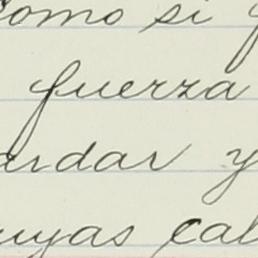 como si
fuerza
ardar y
uyas cal